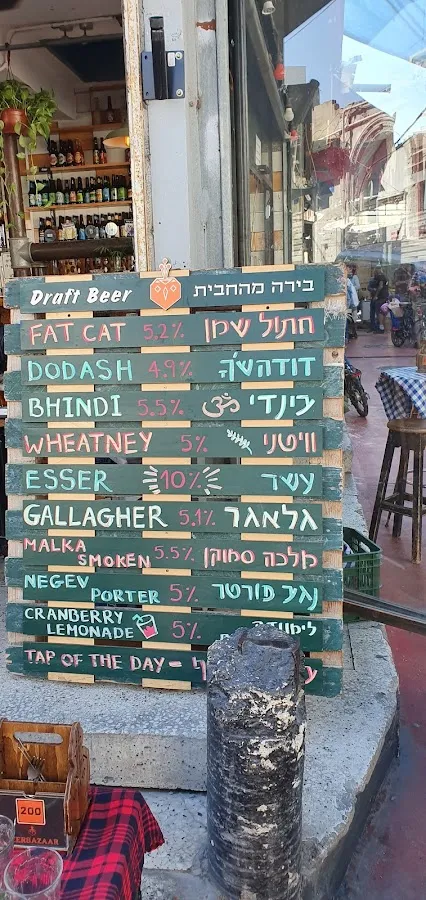 Draft Beer בירה מהחבית
FAT CAT 5.2% חתול שמן
DODASH 4.9% דודהש'ה
BHINDI 5.5% ॐ בינדי
WHEATNEY 5% וויטני
ESSER 10% עשר
GALLAGHER 5.1% גלאגר
MALKA SMOKEN 5.5% מלכה סמוקן
NEGEV PORTER 5% נגב פורטר
CRANBERRY LEMONADE 5%
TAP OF THE DAY -
200